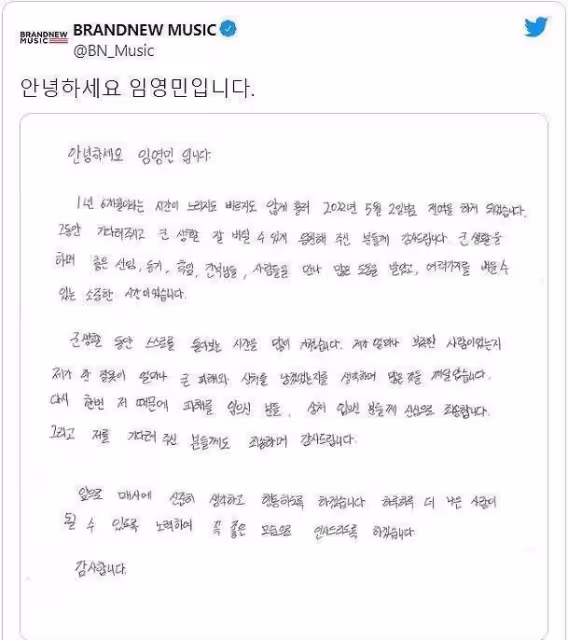 BRANDNEW MUSIC
BRANDNEW MUSIC
@BN_Music
안녕하세요 임영민입니다.
안녕하세요 임영민 입니다.
1년 6개월이라는 시간이 느리지도 빠르지도 않게 흘러 2022년 5월 2일부로 전역을 하게 되었습니다.
그동안 기다려주시고 군 생활 잘 버틸 수 있게 응원해 주신 분들께 감사드립니다. 군 생활을
하며 좋은 선임, 동기, 후임, 간부님들, 사람들을 만나 많은 도움을 받았고, 여러가지를 배울 수
있는 소중한 시간이었습니다.
군 생활 동안 스스로를 돌아보는 시간을 많이 가졌습니다. 제가 얼마나 부족한 사람이었는지
제가 한 잘못이 얼마나 큰 피해와 상처를 남겼었는지를 생각하며 많은 것을 깨달았습니다.
다시 한번 저 때문에 피해를 입으신 분들, 상처 입었던 분들께 진심으로 죄송합니다.
그리고 저를 기다려 주신 분들께도 죄송하며 감사드립니다.
앞으로 매사에 신중히 생각하고 행동하도록 하겠습니다 하루하루 더 나은 사람이
될 수 있도록 노력하여 꼭 좋은 모습으로 인사드리도록 하겠습니다
감사합니다.